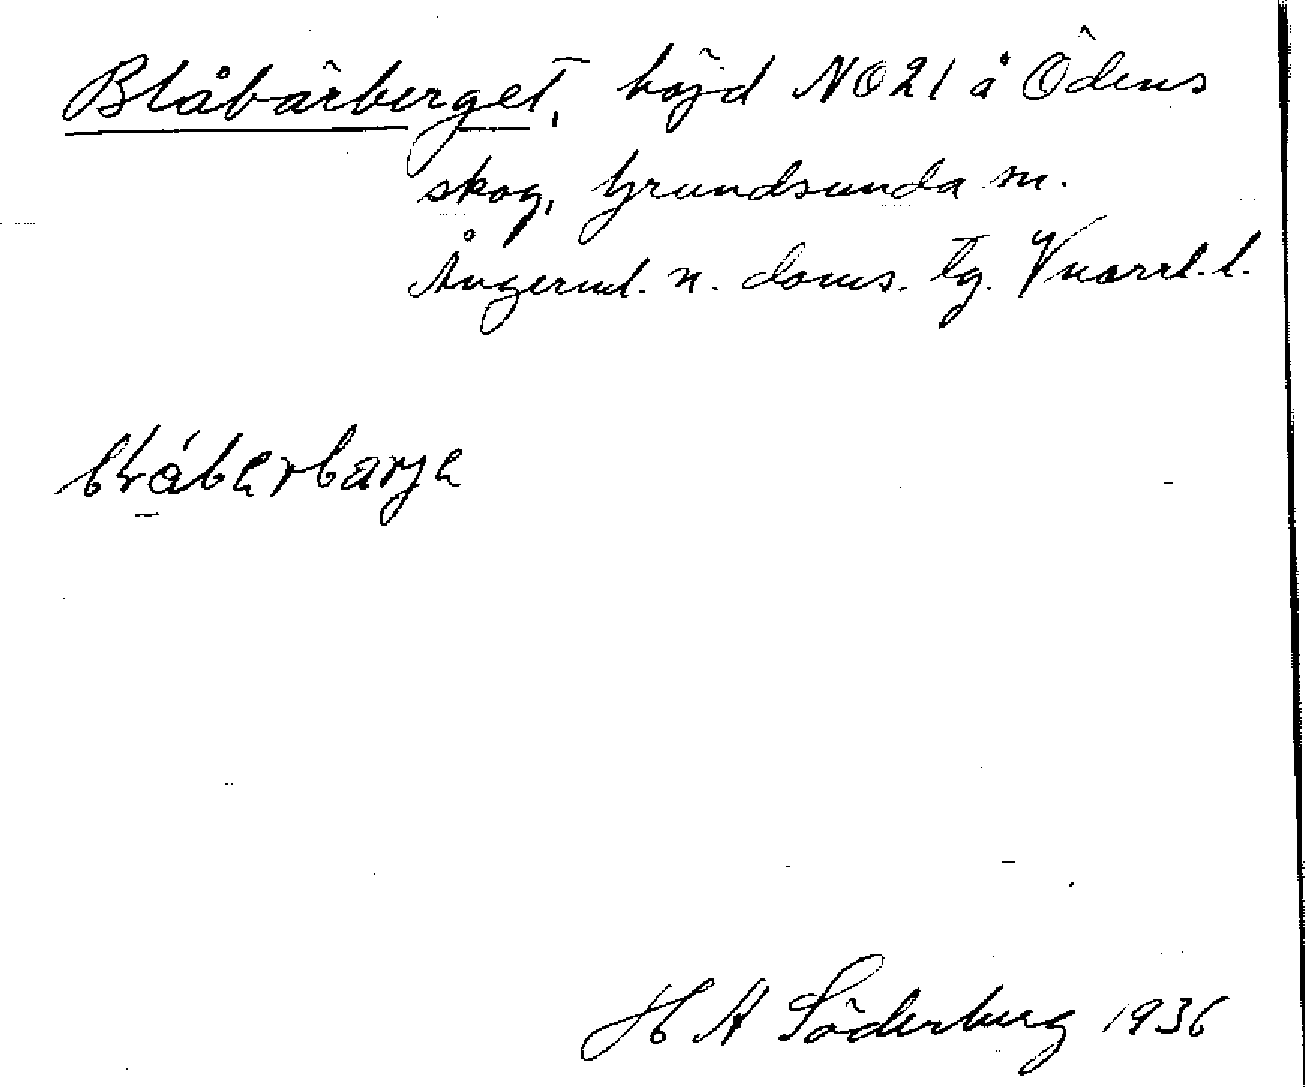 Blåbärberget, höjd NO21 å Ödens
skog, Grundsunda sn.
Ångerml. n. doms. tg. Vnorrl. l.
blåbärbarje
H A Söderberg 1936